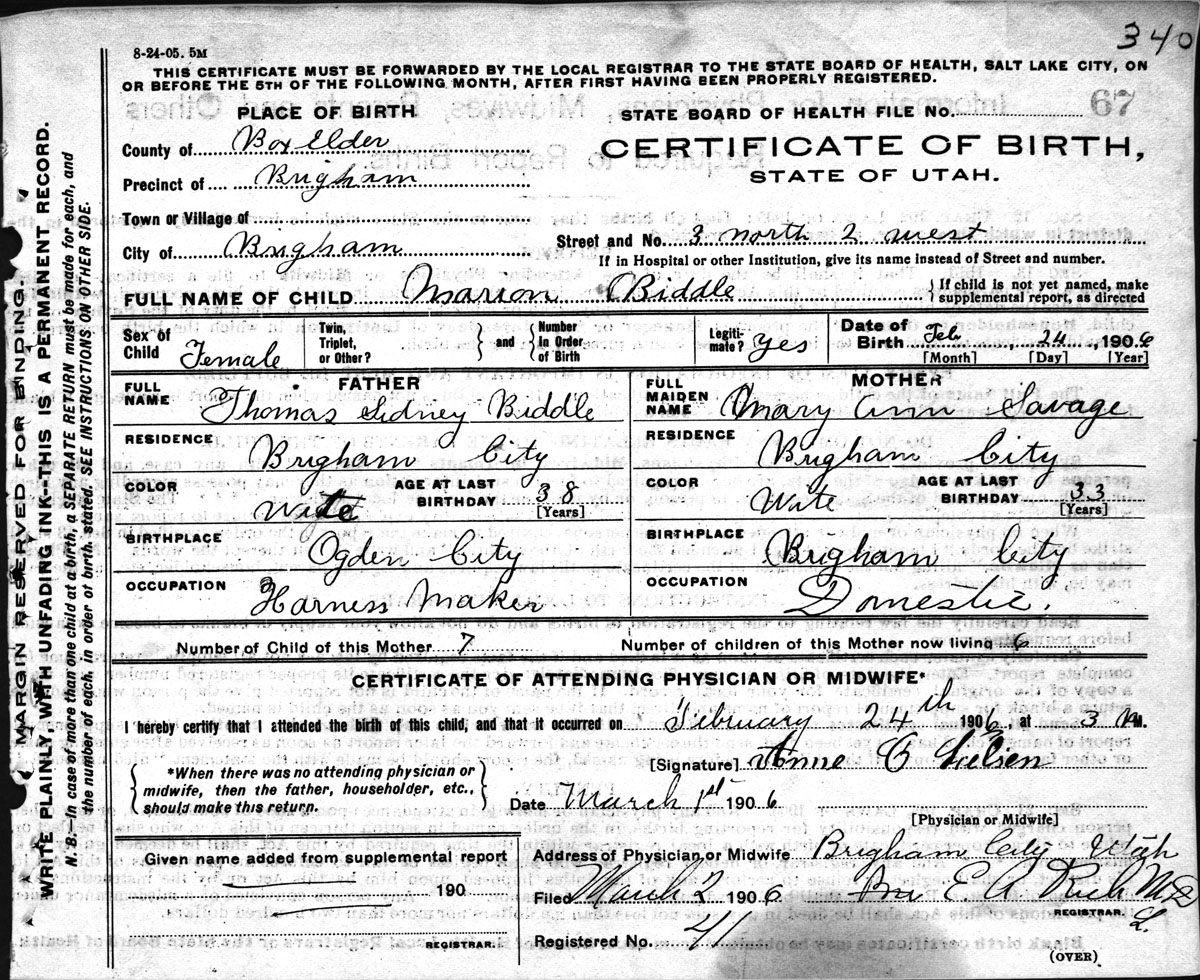 340
8-24-05. 5M
THIS CERTIFICATE MUST BE FORWARDED BY THE LOCAL REGISTRAR TO THE STATE BOARD OF HEALTH, SALT LAKE CITY, ON
OR BEFORE THE 5TH OF THE FOLLOWING MONTH, AFTER FIRST HAVING BEEN PROPERLY REGISTERED.
PLACE OF BIRTH
STATE BOARD OF HEALTH FILE No. 67
County of Box Elder
CERTIFICATE OF BIRTH,
STATE OF UTAH.
Precinct of Brigham
Town or Village of
City of Brigham
Street and No. 3 north 2 west
If in Hospital or other Institution, give its name instead of Street and number.
FULL NAME OF CHILD Marion Biddle
If child is not yet named, make
supplemental report, as directed
Sex of Child Female
Twin, Triplet, or Other?
and
Number in Order of Birth
Legitimate? Yes
Date of Birth Feb 24, 1906
[Month] [Day] [Year]
FATHER
FULL NAME Thomas Sidney Biddle
RESIDENCE Brigham City
COLOR Wite
AGE AT LAST BIRTHDAY 38
[Years]
BIRTHPLACE Ogden City
OCCUPATION Harness Maker
MOTHER
FULL MAIDEN NAME Mary Ann Savage
RESIDENCE Brigham City
COLOR Wite
AGE AT LAST BIRTHDAY 33
[Years]
BIRTHPLACE Brigham City
OCCUPATION Domestic.
Number of Child of this Mother 7
Number of children of this Mother now living 6
CERTIFICATE OF ATTENDING PHYSICIAN OR MIDWIFE*
I hereby certify that I attended the birth of this child, and that it occurred on February 24th 1906, at 3 M.
[Signature] Anne C Nielsen
*When there was no attending physician or
midwife, then the father, householder, etc.,
should make this return.
Date March 1st 1906
[Physician or Midwife]
Given name added from supplemental report
190
REGISTRAR.
Address of Physician or Midwife Brigham City Utah
Filed March 2 1906 E A Rich MD
REGISTRAR.
L.
Registered No. 41
(OVER)
MARGIN RESERVED FOR BINDING.
WRITE PLAINLY, WITH UNFADING INK--THIS IS A PERMANENT RECORD.
N. B.—In case of more than one child at a birth, a SEPARATE RETURN must be made for each, and
the number of each, in order of birth, stated. SEE INSTRUCTIONS ON OTHER SIDE.